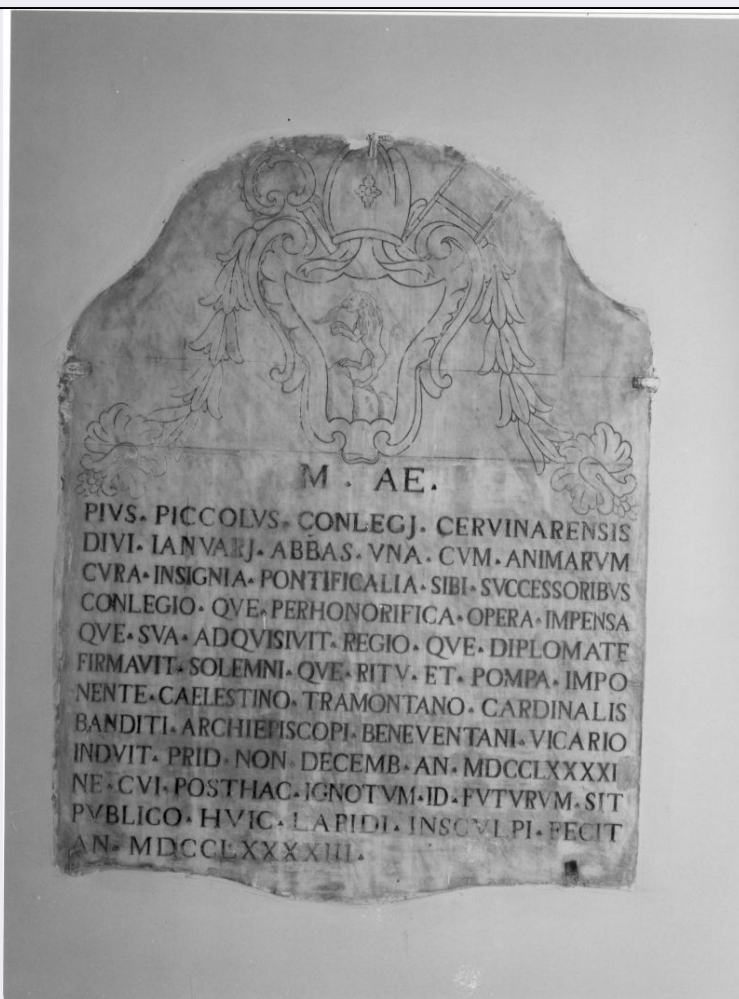 M · AE ·
PIVS · PICCOLVS · CONLEGJ · CERVINARENSIS
DIVI · IANVARJ · ABBAS · VNA · CVM · ANIMARVM
CVRA · INSIGNIA · PONTIFICALIA · SIBI · SVCCESSORIBVS
CONLEGIO · QVE · PERHONORIFICA · OPERA · IMPENSA
QVE · SVA · ADQVISIVIT · REGIO · QVE · DIPLOMATE
FIRMAVIT · SOLEMNI · QVE · RITV · ET · POMPA · IMPO
NENTE · CAELESTINO · TRAMONTANO · CARDINALIS
BANDITI · ARCHIEPISCOPI · BENEVENTANI · VICARIO
INDVIT · PRID · NON · DECEMB · AN · MDCCLXXXXI
NE · CVI · POSTHAC · IGNOTVM · ID · FVTVRVM · SIT
PVBLICO · HVIC · LAPIDI · INSCVLPI · FECIT
AN · MDCCLXXXXIII ·